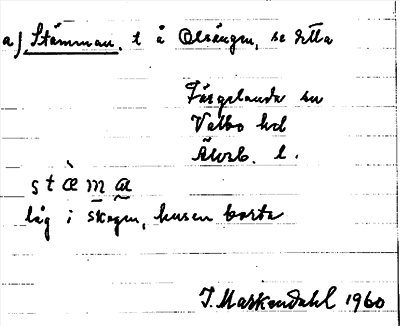 a) Stämman, t å Olsängen, se detta
Färgelanda sn
Valbo hd
Älvsb. l.
stæ̀ma
låg i skogen, husen borta
J. Maskendahl 1960